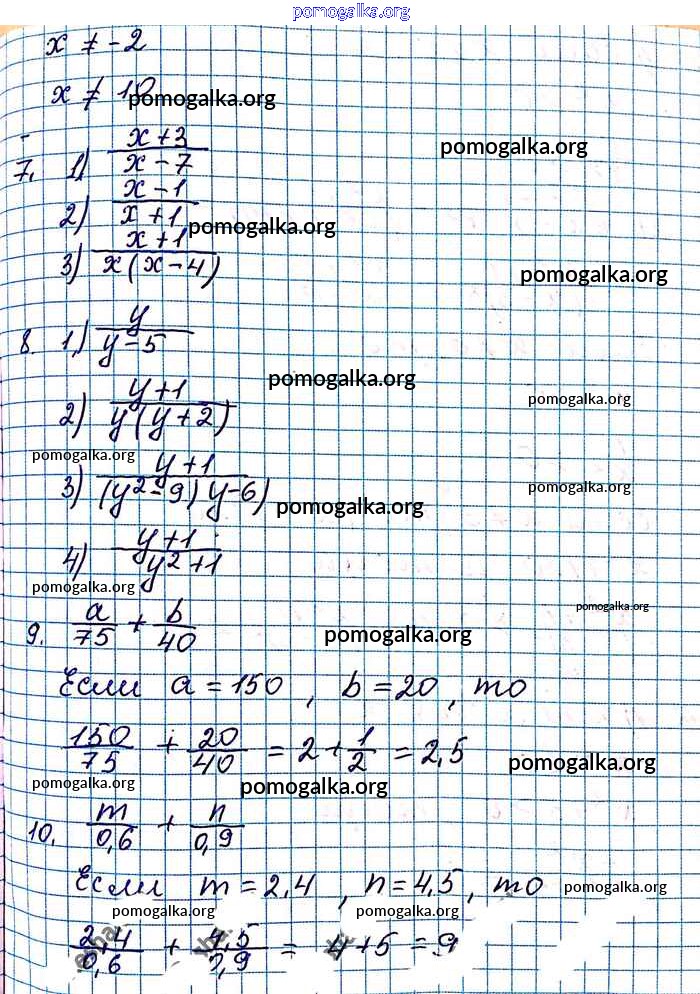 pomogalka.org
x ≠ -2
x ≠ 10 pomogalka.org
pomogalka.org
7. 1) (x+3)/(x-7)
2) (x-1)/(x+1) pomogalka.org
3) (x+1)/(x(x-4))
pomogalka.org
8. 1) y/(y-5)
pomogalka.org
2) (y+1)/(y(y+2)) pomogalka.org
pomogalka.org
3) (y+1)/((y²-9)(y-6)) pomogalka.org
pomogalka.org
4) (y+1)/(y²+1)
pomogalka.org
pomogalka.org
9. a/75 + b/40 pomogalka.org
Если a = 150, b = 20, то
150/75 + 20/40 = 2 + 1/2 = 2,5 pomogalka.org
pomogalka.org pomogalka.org
10. m/0,6 + n/0,9
Если m = 2,4, n = 4,5, то pomogalka.org
pomogalka.org pomogalka.org
2,4/0,6 + 4,5/0,9 = 4 + 5 = 9